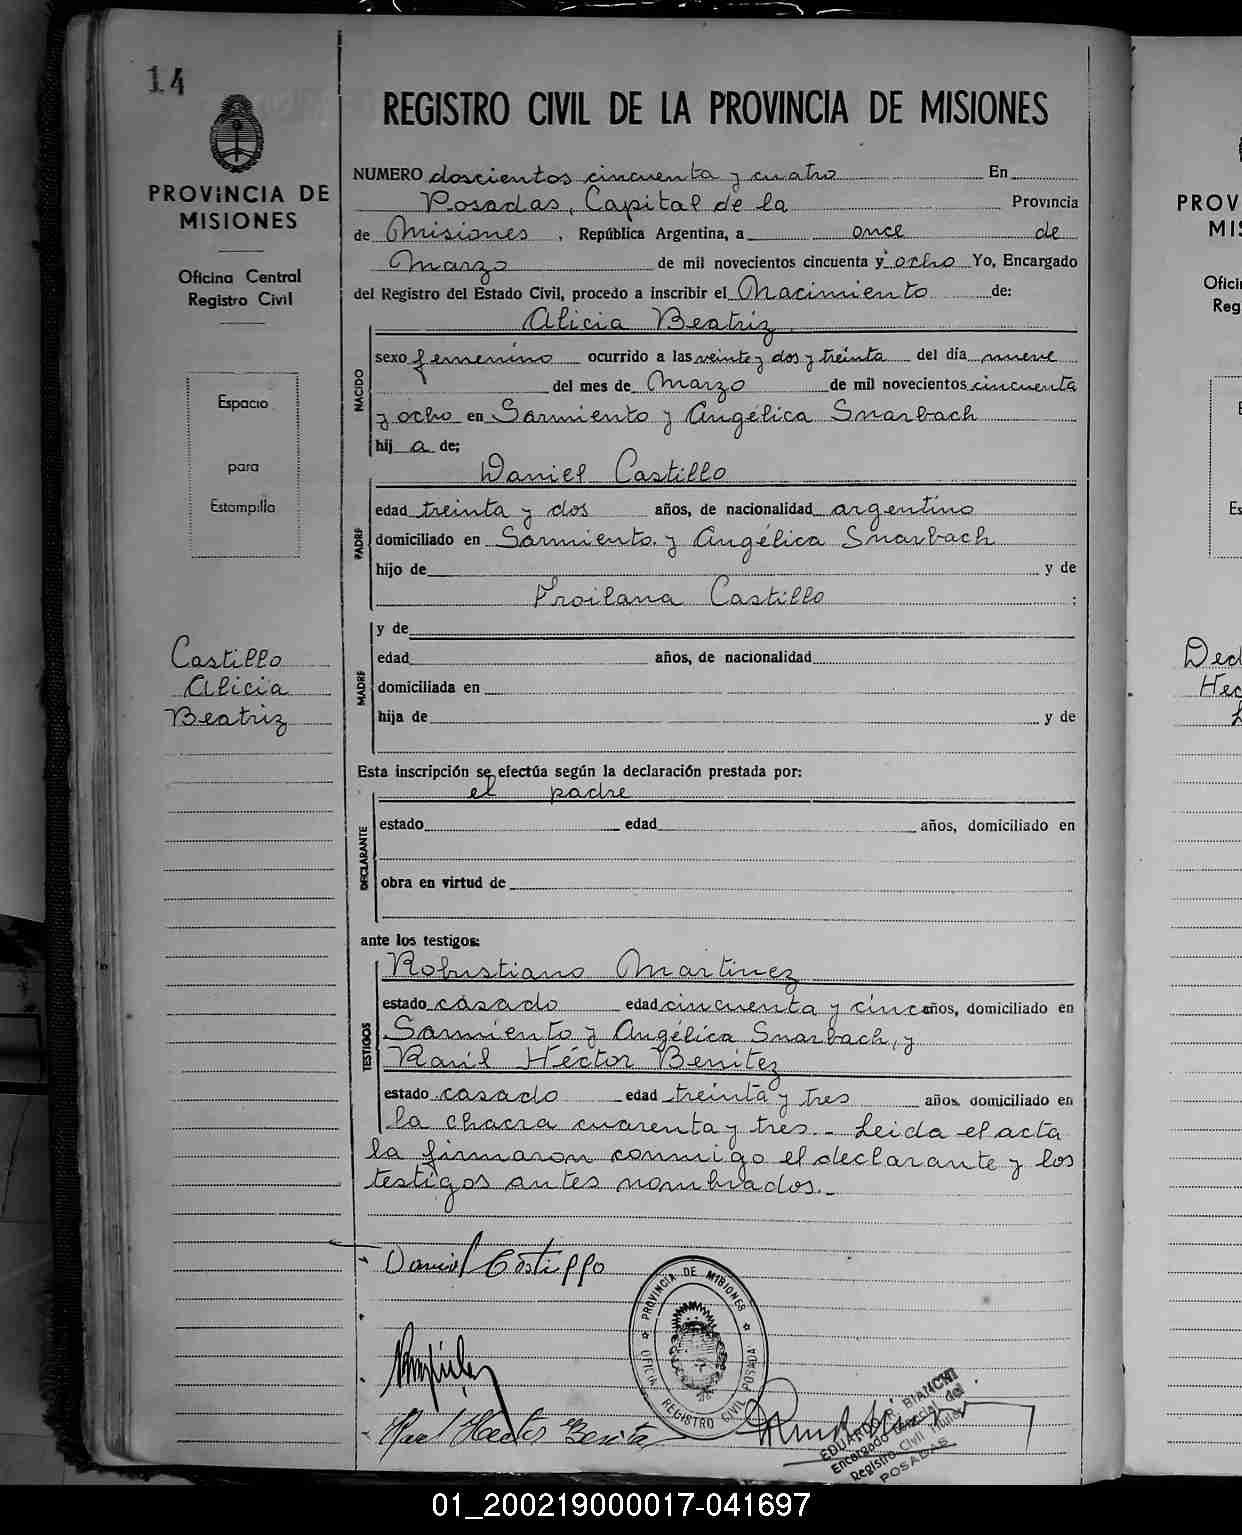 14
PROVINCIA DE
MISIONES
Oficina Central
Registro Civil
Espacio
para
Estampilla
Castillo
Alicia
Beatriz
REGISTRO CIVIL DE LA PROVINCIA DE MISIONES
NUMERO doscientos cincuenta y cuatro En
Posadas, Capital de la Provincia
de Misiones, República Argentina, a once de
Marzo de mil novecientos cincuenta y ocho Yo, Encargado
del Registro del Estado Civil, procedo a inscribir el Nacimiento de:
NACIDO
Alicia Beatriz
sexo femenino ocurrido a las veinte y dos y treinta del día nueve
del mes de Marzo de mil novecientos cincuenta
y ocho en Sarmiento y Angélica Snarbach
hij a de;
PADRE
Daniel Castillo
edad treinta y dos años, de nacionalidad argentino
domiciliado en Sarmiento y Angélica Snarbach
hijo de y de
Froilana Castillo ;
MADRE
y de
edad años, de nacionalidad
domiciliada en
hija de y de
Esta inscripción se efectúa según la declaración prestada por:
DECLARANTE
el padre
estado edad años, domiciliado en
obra en virtud de
ante los testigos:
TESTIGOS
Robustiano Martinez
estado casado edad cincuenta y cinco años, domiciliado en
Sarmiento y Angélica Snarbach, y
Raúl Héctor Benitez
estado casado edad treinta y tres años, domiciliado en
la chacra cuarenta y tres.- Leida el acta
la firmaron conmigo el declarante y los
testigos antes nombrados.-
Daniel Castillo
PROVINCIA DE MISIONES
OFICIA REGISTRO CIVIL POSADAS
Raul Hector Benitez
EDUARDO R. BIANCHI
Encargado del
Registro Civil
POSADAS
PROV
MIS
Ofici
Reg
E
Es
Decl
Hec
01_200219000017-041697